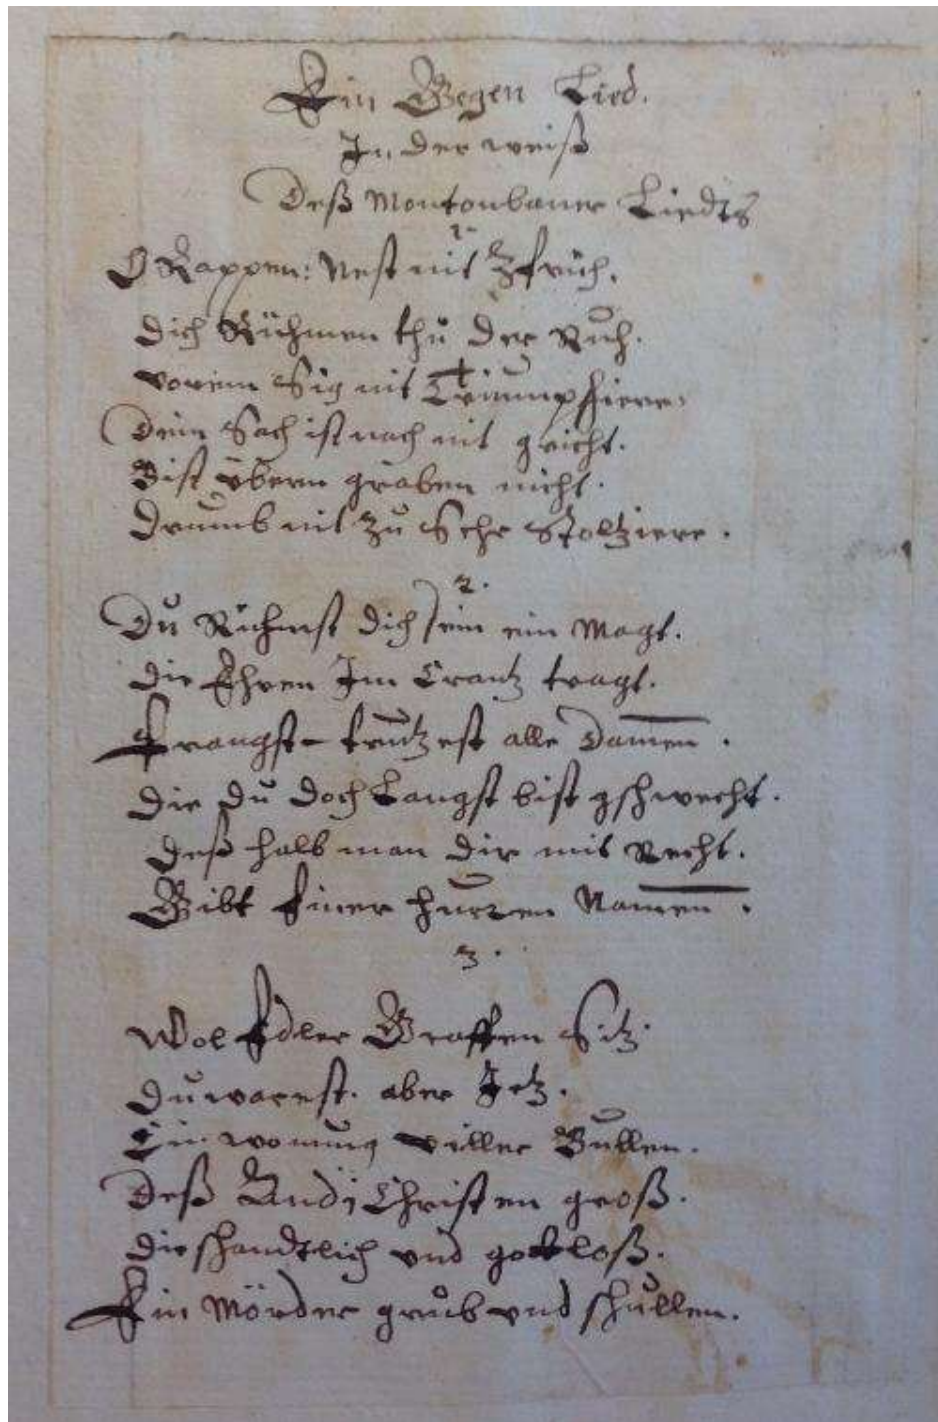 Ein Gegen Lied.
In der weiß
Deß Montonbaner Liedts
1.
O Rappen: Nest nit Zfrüh.
dich Rühmen thu der Ruh.
vorem Sig nit Triumphiere
Dein Sach ist noch nit gricht.
Bist übern graben nicht.
Drumb nit zu Sehr Stoltziere.
2.
Du Rühmst dich sein ein Magt.
die Ehren Im Crantz tragt.
Prangst trutzest alle Damen.
die du doch Langst bist gschwecht.
deß halb man dir mit Recht.
Gibt Einer hurren Namen.
3.
Wol Edler Graffen Sitz
du warest. aber Jetz.
Ein wonung viller Bullen.
Deß Andi Christen groß.
die shandtlich und gottloß.
Ein Mörder grub und shullen.